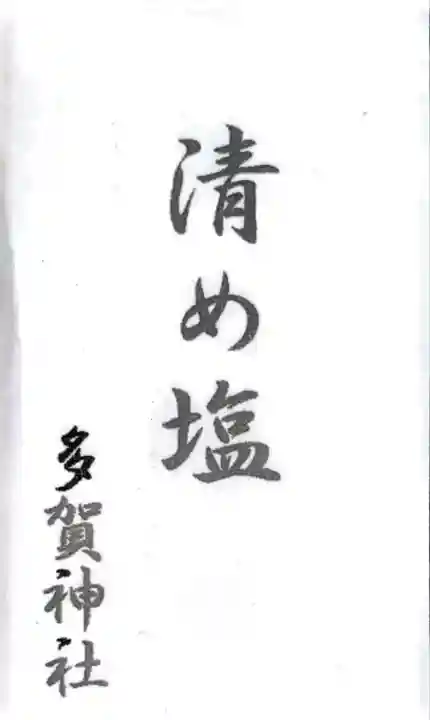 清め塩
多賀神社